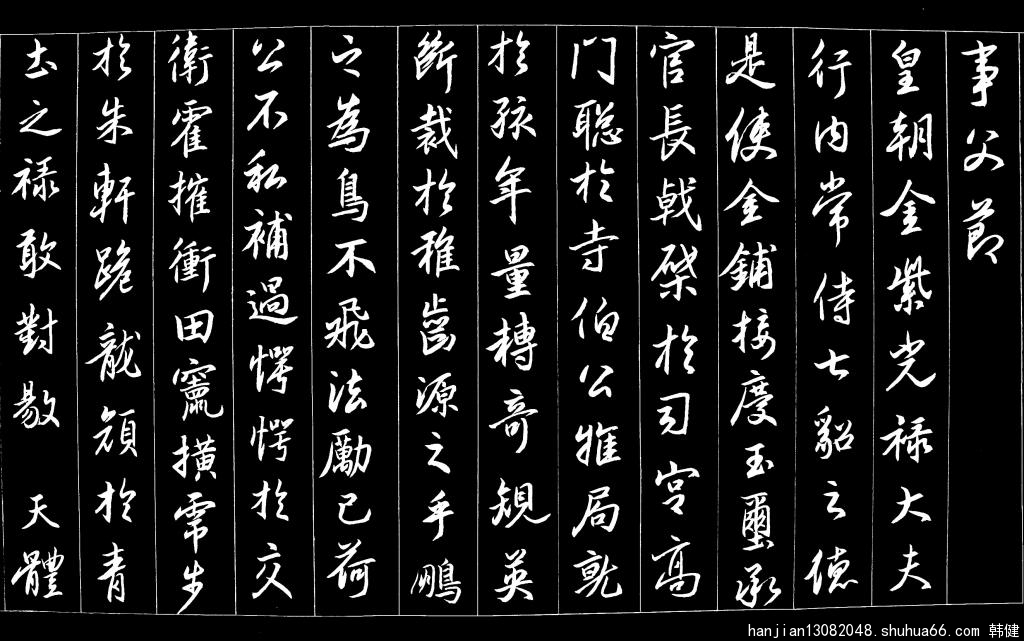 事父莭
皇朝金紫光禄大夫
行内常侍七貂之德
是使金鋪接慶玉璽承
官長戟棨於司宫高
門聡於寺伯公雅局就
於孩年量轉奇規英
断裁於稚齒源之乎鵬
之為鳥不飛法勵己荷
公不私補過愕愕於交
衛霍摧衝田竇横步
於朱軒跪龍顔於青
土之禄敢對敭 天體
hanjian13082048.shuhua66.com 韩健